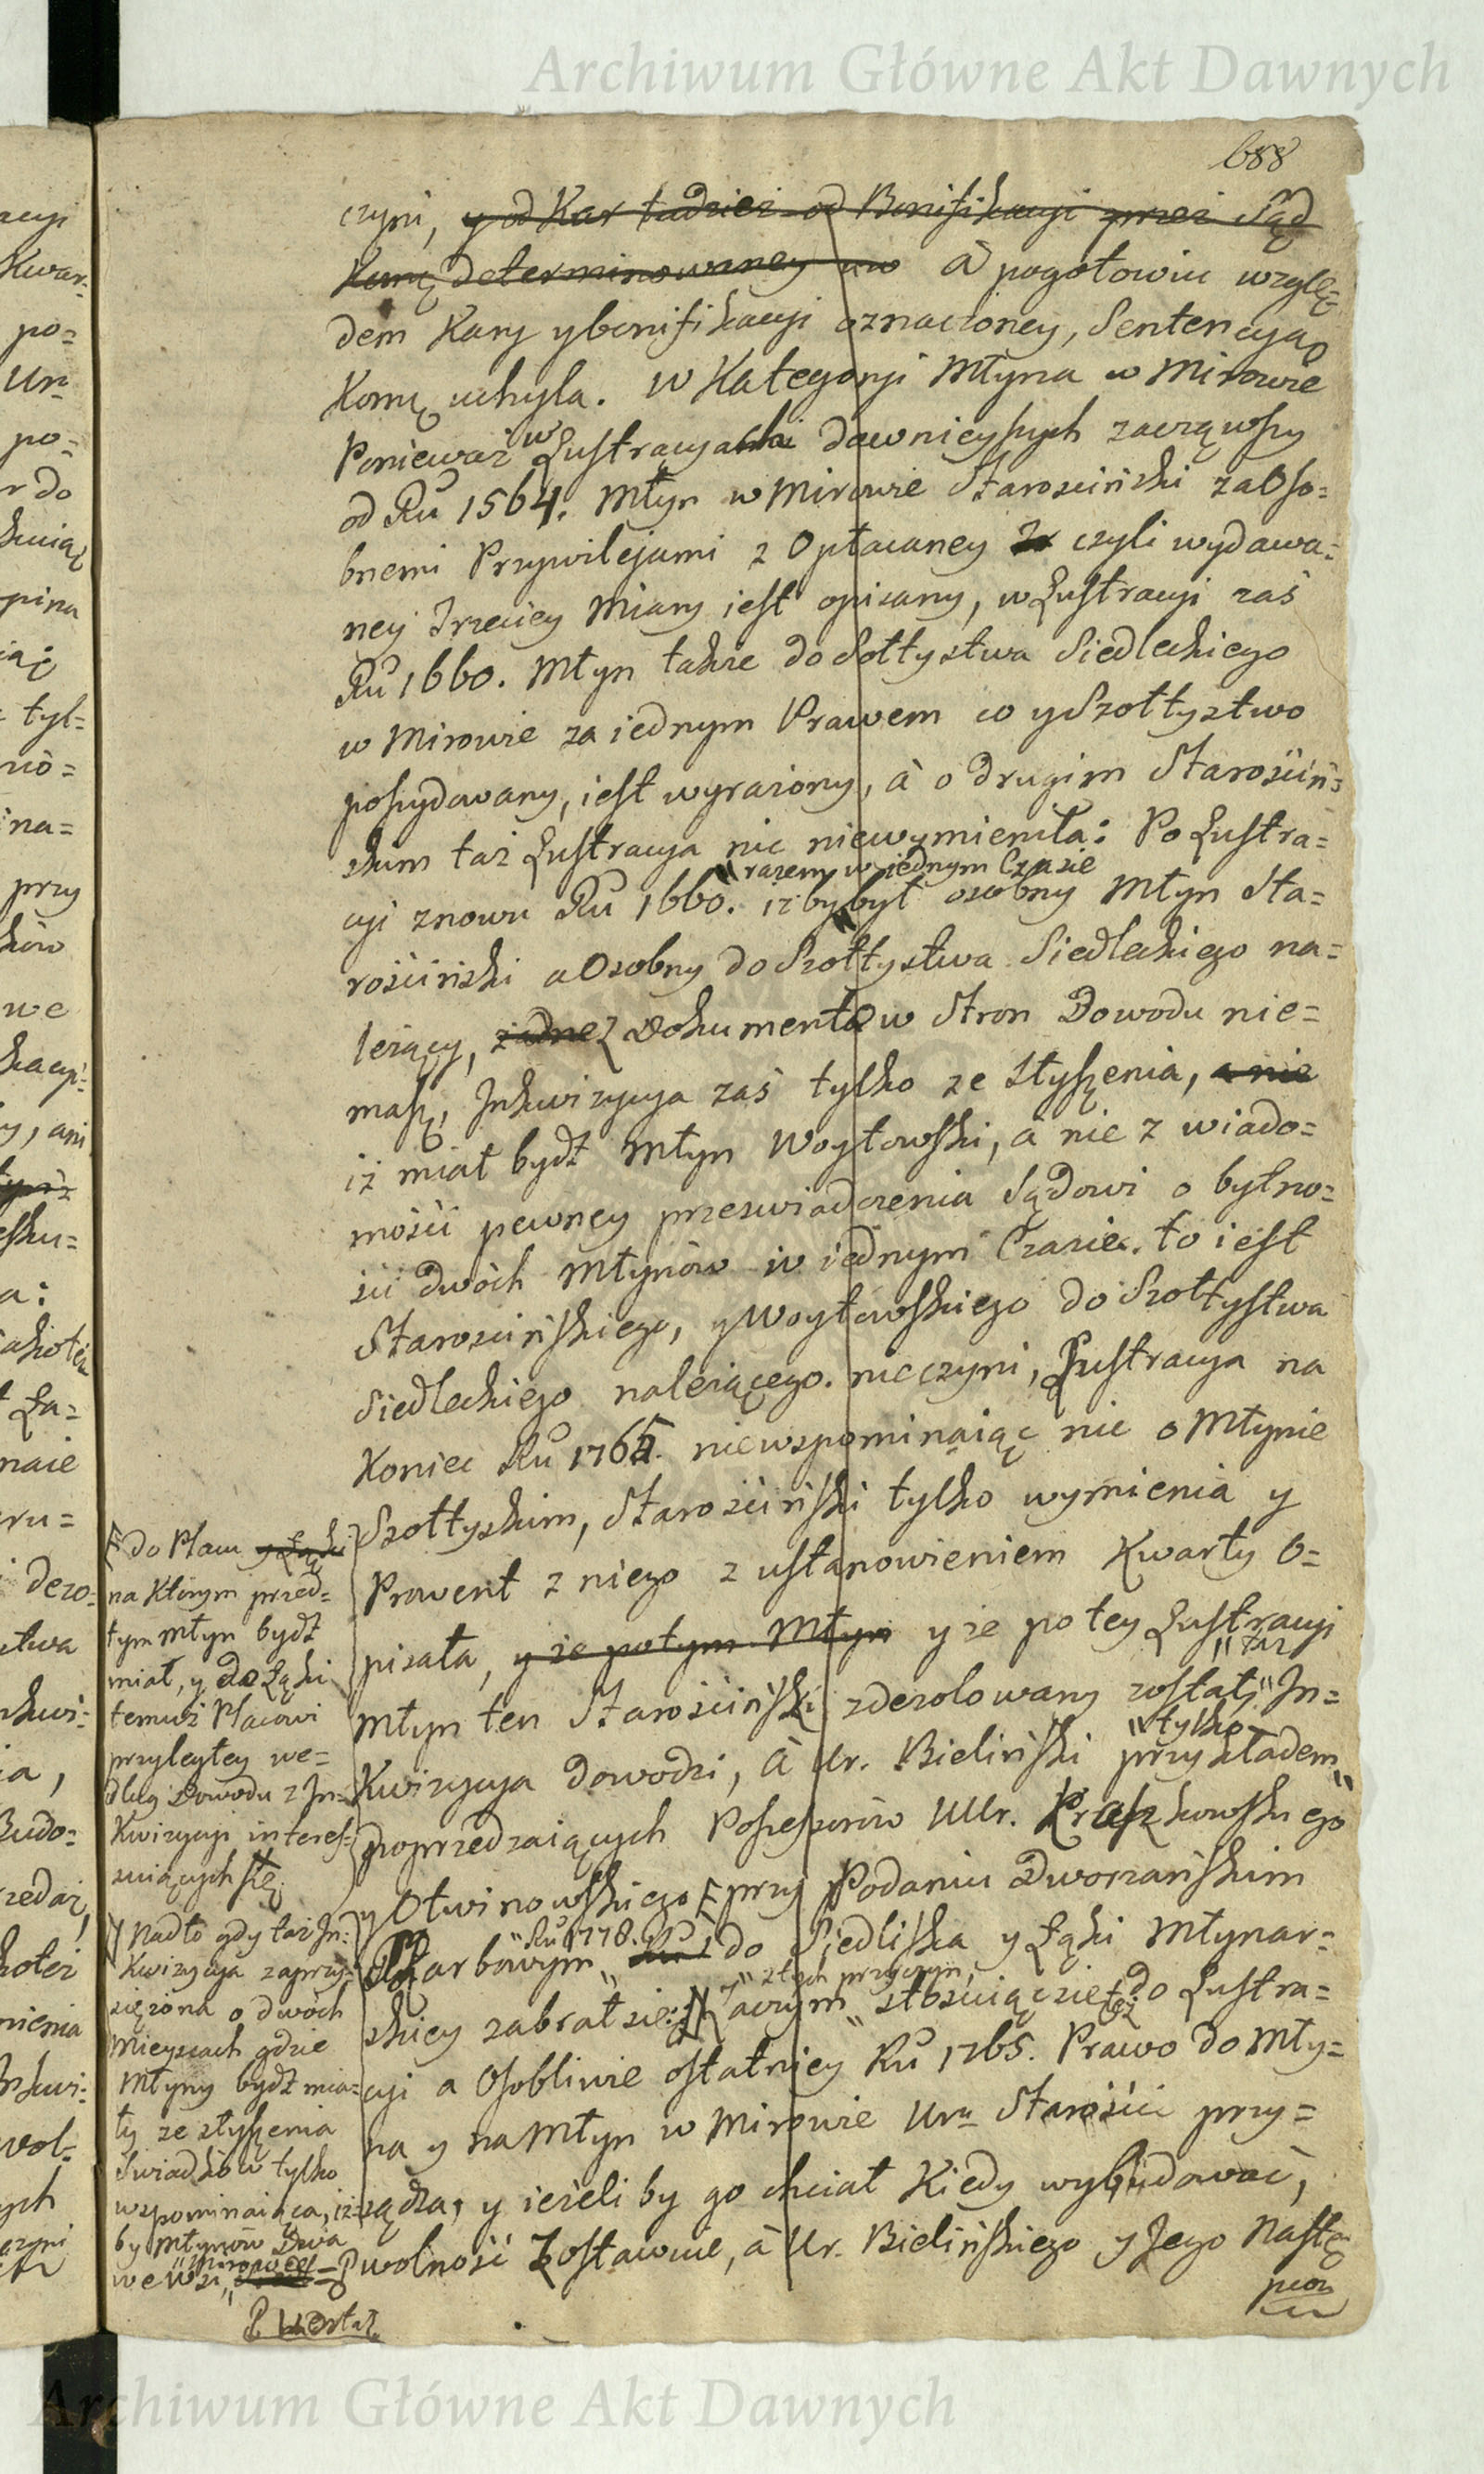 Archiwum Główne Akt Dawnych
688
czyni, y od Kar tudziez od Bonifikacyi przez Sąd
Kom̃ę determinowaney uw à pogotowiu wzglę=
dem Kary y bonifikacyi oznaczoney, Sentencyąą
Kom̃ę uchyla. W Kategoryi Młyna w Mirowie
Ponieważ w Lustracyach dawnieyszych zacząwszy
od Ru 1564. Młyn w Mirowie Starosciński za Oso=
bnemi Przywilejami z Opłacaney czyli wydawa=
ney Trzeciey Miary iest opisany, w Lustracyi zaś
Ru 1660. Młyn także do Sołtystwa Siedleckiego
w Mirowie za iednym Prawem co y Szołtystwo
possydowany, iest wyrażony, à o drugim Starościń=
skim taż Lustracya nic niewymieniła: Po Lustra=
"razem w iednym Czasie
cyi znowu Ru 1660. iżby był osobny Młyn Sta=
rościński a Osobny do Szołtystwa Siedleckiego na=
leżący, żadnez Dokumentów Stron Dowodu nie=
masz, Inkwizycya zaś tylko ze Słyszenia, a nie
iż miał bydź Młyn Woytowski, à nie z wiado=
mości pewney przeswiadczenia Sądowi o bytno=
ści dwóch Młynów w iednym Czasie. to iest
Starościńskiego, y Woytowskiego do Szołtystwa
Siedleckiego należącego. nieczyni, Lustracya na
Koniec Ru 1765. niewspominaiąc nic o Młynie
Szołtyskim, Starościński tylko wymienia y
Prowent z niego z ustanowieniem Kwarty O=
pisała, y że potym Młyn y że po tey Lustracyi
"taż
Młyn ten Starościński zdezolowany został," In=
"tylko
Kwizycya dowodzi, à Ur. Bieliński przykładem"
poprzedzaiących Possessorów UUr. Kraszkowskiego
y Otwinowskiego przy Podaniu Dworzańskim
"Ru 1778.
Skarbowym" do Siedliska y Łąki Młynar=
y "z tych przyczyn,
skiey zabrał się: Zaczym" stosuiąc się do Lustra=
tey
cyi a Osobliwie ostatniey Ru 1765. Prawo do Mły=
na y na Młyn w Mirowie Uru Staroście przy=
sądza, y ieżeliby go chciał Kiedy wybudować,
wolność Zostawuie, à Ur. Bielińskiego y Jego Nastę
pcow
do Placu y Łąki
na Ktorym przed=
tym Młyn bydź
miał, y do Łąki
temuż Placowi
przyległey we=
dług Dowodu z In=
Kwizycyi interes=
suiących się.
Nadto gdy taż In=
Kwizycya zaprzy=
siężona o dwóch
Mieyscach gdzie
Młyny bydź mia=
ły ze słyszenia
Swiadków tylko
wspominaiąca, iż=
by Młynów Dwa
"Mirowcu
we Wsi"
Archiwum Główne Akt Dawnych